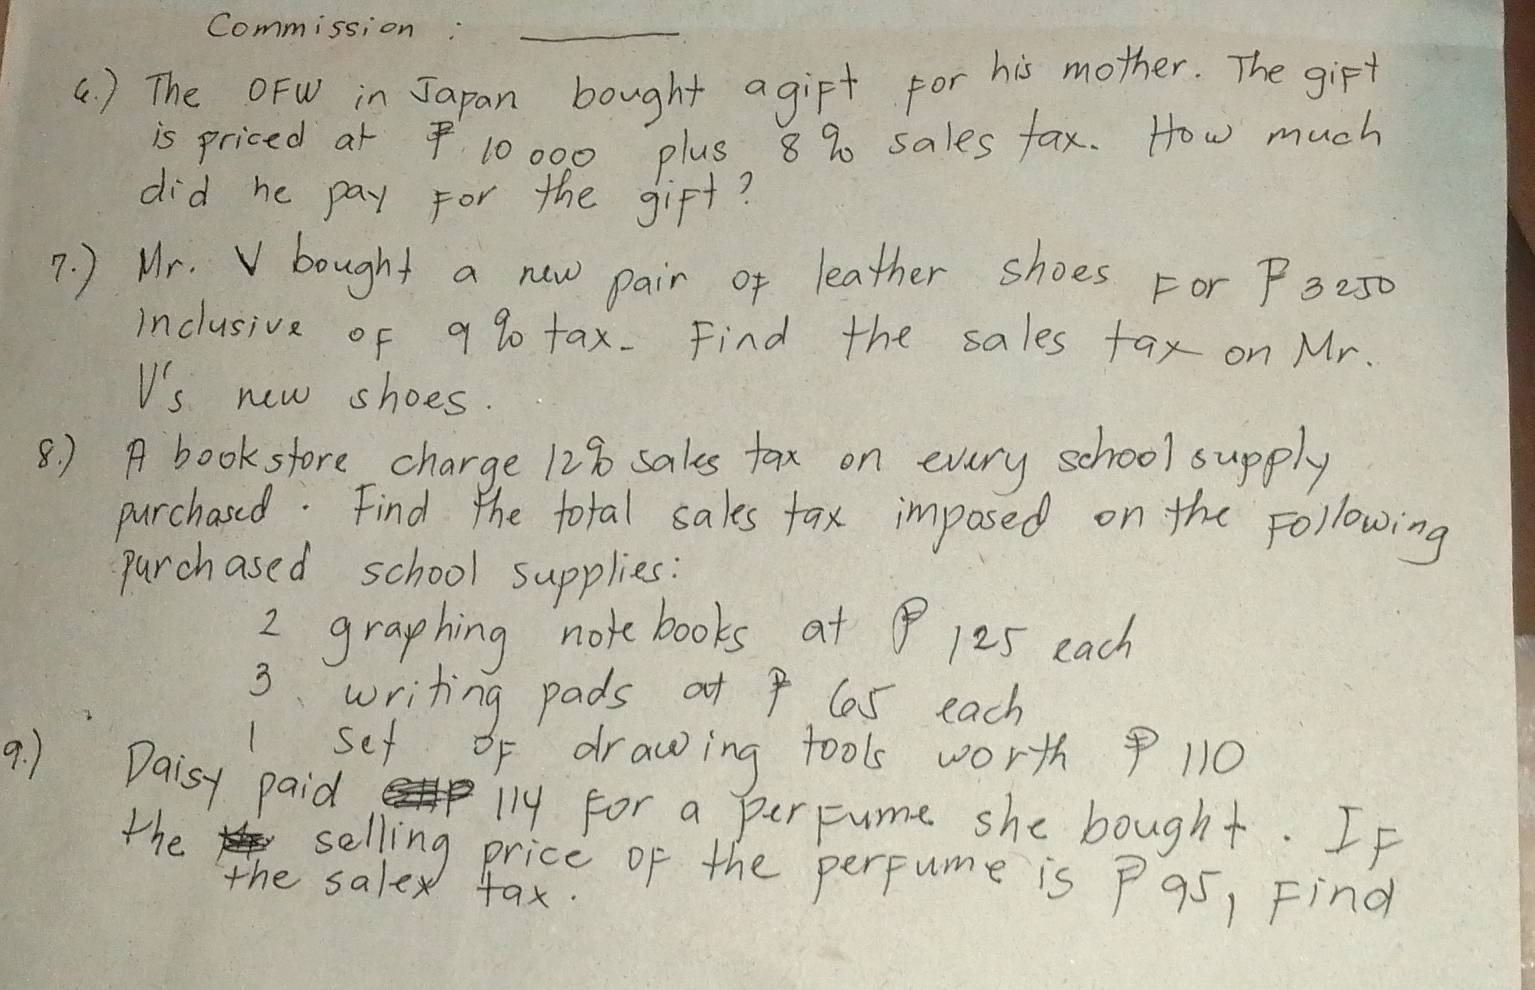 Commission : ______
6.) The OFW in Japan bought a gift for his mother. The gift
is priced at ₱ 10 000 plus 8% sales tax. How much
did he pay for the gift?
7.) Mr. V bought a new pair of leather shoes for ₱ 3250
inclusive of 9% tax. Find the sales tax on Mr.
V's new shoes.
8.) A bookstore charge 12% sales tax on every school supply
purchased. Find the total sales tax imposed on the following
purchased school supplies:
2 graphing notebooks at ₱ 125 each
3 writing pads at ₱ 65 each
1 set of drawing tools worth ₱ 110
9.) Daisy paid 114 for a perfume she bought. If
the selling price of the perfume is ₱ 95, find
the salex tax.